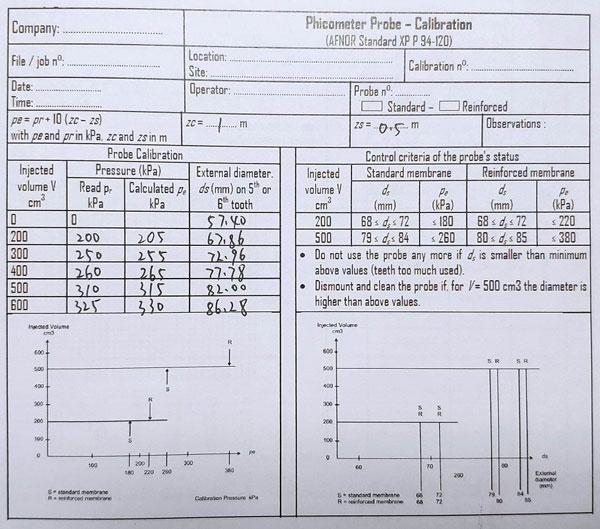 Company:
Phicometer Probe – Calibration
(AFNOR Standard XP P 94-120)
File / job nº:
Location:
Site:
Calibration nº:
Date:
Time:
Operator:
Probe nº:
Standard – Reinforced
pe = pr + 10 (zc – zs)
with pe and pr in kPa, zc and zs in m
zc = 1 m
zs = 0.5 m
Observations :
Probe Calibration
Injected volume V cm³ | Pressure (kPa) | External diameter. ds (mm) on 5th or 6th tooth
Read pr kPa | Calculated pe kPa
0 0 57.40
200 200 205 67.86
300 250 255 72.96
400 260 265 77.78
500 310 315 82.00
600 325 330 86.28
Control criteria of the probe's status
Injected volume V cm³ | Standard membrane | Reinforced membrane
ds (mm) | pe (kPa) | ds (mm) | pe (kPa)
200 68 ≤ ds ≤ 72 ≤ 180 68 ≤ ds ≤ 72 ≤ 220
500 79 ≤ ds ≤ 84 ≤ 260 80 ≤ ds ≤ 85 ≤ 380
• Do not use the probe any more if ds is smaller than minimum
above values (teeth too much used).
• Dismount and clean the probe if, for V= 500 cm3 the diameter is
higher than above values.
Injected Volume
cm3
600
500
400
300
200
100
0
R
S
R
S
100 200 300 pe
180 220 260 380
S = standard membrane
R = reinforced membrane
Calibration Pressure kPa
Injected Volume
cm3
600
500
400
300
200
100
0
S R S R
S S
R R
60 70 80 ds
260
External
diameter
(mm)
S = standard membrane 68 72 79 84
R = reinforced membrane 68 72 80 85